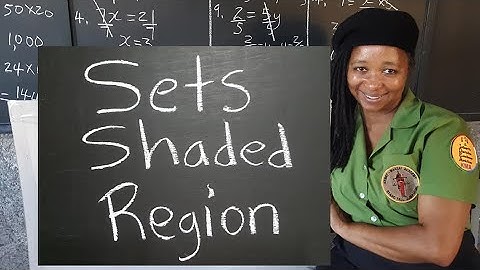 50x20
1,000
24x
=144
4. 7x = 21
7
x = 3
9. 2/5 = 2y
Sets
Shaded
Region